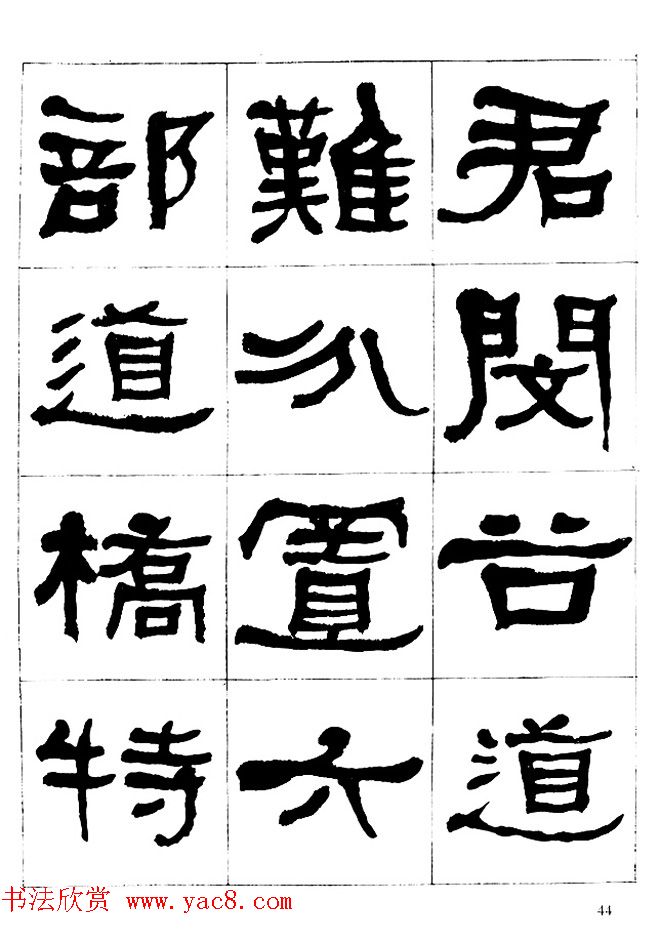 君閔谷道
難分置六
部道橋特
书法欣赏 www.yac8.com
44